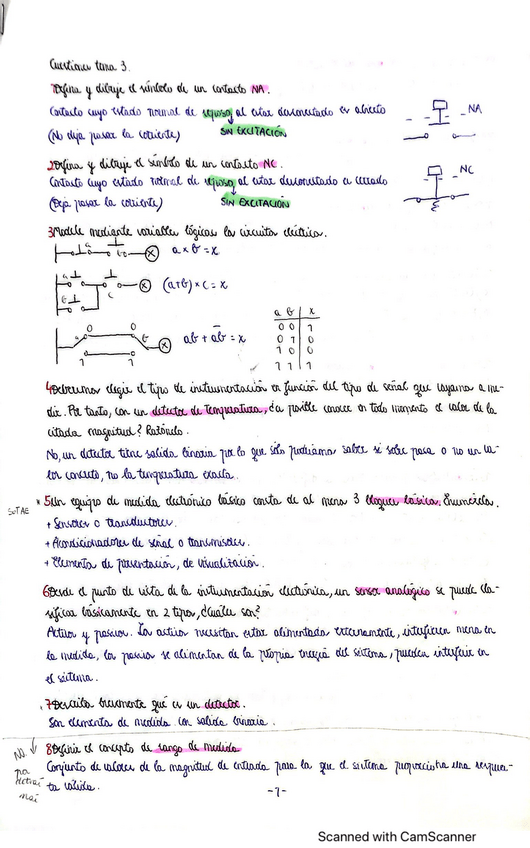 Cuestiones tema 3.
1Defina y dibuje el símbolo de un contacto NA.
Contacto cuyo estado normal de reposo, al estar desconectado es abierto
(No deja pasar la corriente) SIN EXCITACIÓN
NA
2Defina y dibuje el símbolo de un contacto NC.
Contacto cuyo estado normal de reposo, al estar desconectado es cerrado
(Deja pasar la corriente) SIN EXCITACIÓN
NC
3Modele mediante variables lógicas los circuitos eléctricos.
a b X a × b = x
a b c X (a+b) × c = x
0 0 a b 1 1 X ab + ab = x
a b x
0 0 1
0 1 0
1 0 0
1 1 1
4Deberemos elegir el tipo de instrumentación en función del tipo de señal que vayamos a me-
dir. Por tanto, con un detector de temperatura, ¿a posible conocer en todo momento el valor de la
citada magnitud? Razónelo.
No, un detector tiene salida binaria por lo que sólo podríamos saber si sobre pasa o no un va-
lor concreto, no la temperatura exacta.
SUTAE * 5Un equipo de medida electrónico básico consta de al menos 3 bloques básicos. Enumérelos.
+ Sensores o transductores.
+ Acondicionadores de señal o transmisores.
+ Elementos de presentación, de visualización.
6Desde el punto de vista de la instrumentación electrónica, un sensor analógico se puede cla-
sificar básicamente en 2 tipos, ¿cuáles son?
Activos y pasivos. Los activos necesitan estar alimentados externamente, interfieren menos en
la medida, los pasivos se alimentan de la propia energía del sistema, pueden interferir en
el sistema.
7Describa brevemente qué es un detector.
Son elementos de medida con salida binaria.
8Definir el concepto de rango de medida
Conjunto de valores de la magnitud de entrada para la que el sistema proporciona una respues-
ta válida.
-1-
Scanned with CamScanner